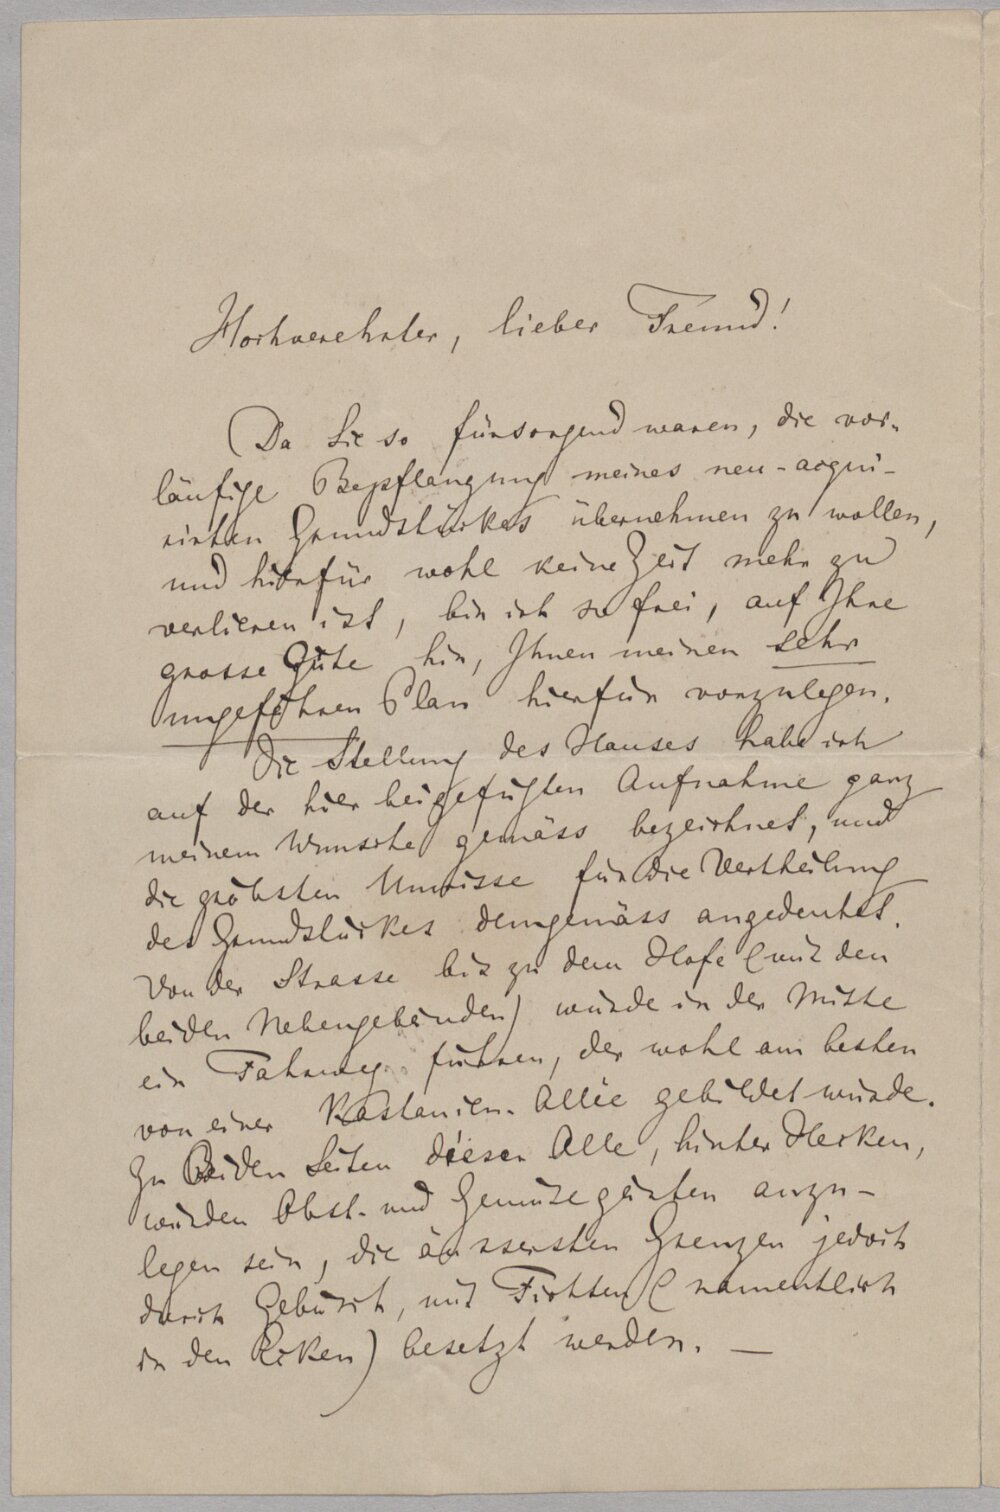 Hochverehrter, lieber Freund!
Da Sie so fürsorgend waren, die vor-
läufige Bepflanzung meines neu-acqui-
rirten Grundstückes übernehmen zu wollen,
und hierfür wohl keine Zeit mehr zu
verlieren ist, bin ich so frei, auf Ihre
grosse Güte hin, Ihnen meinen sehr
ungefähren Plan hierfür vorzulegen.
Die Stellung des Hauses habe ich
auf der hier beigefügten Aufnahme ganz
meinem Wunsche gemäss bezeichnet, und
die gröbsten Umrisse für die Vertheilung
des Grundstückes demgemäss angedeutet.
Von der Strasse bis zu dem Hofe (mit den
beiden Nebengebäuden) würde in der Mitte
ein Fahrweg führen, der wohl am besten
von einer Kastanien-Allée gebildet würde.
Zu Beiden Seiten dieser Alle, hinter Hecken,
würden Obst- und Gemüsegärten anzu-
legen sein, die äussersten Grenzen jedoch
durch Gebüsch, mit Fichten (namentlich
in den Ecken) besetzt werden. —